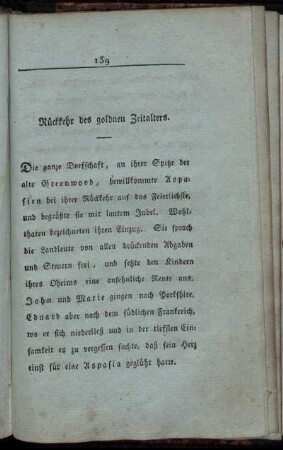 159
Rückkehr des goldnen Zeitalters.
Die ganze Dorfschaft, an ihrer Spitze der
alte Greenwood, bewillkommte Aspa-
sien bei ihrer Rückkehr auf das Feierlichste,
und begrüßte sie mit lautem Jubel. Wohl-
thaten bezeichneten ihren Einzug. Sie sprach
die Landleute von allen drückenden Abgaben
und Steuern frei, und setzte den Kindern
ihres Oheims eine ansehnliche Rente aus.
John und Marie gingen nach Yorkshire.
Eduard aber nach dem südlichen Frankreich,
wo er sich niederließ und in der tiefsten Ein-
samkeit es zu vergessen suchte, daß sein Herz
einst für eine Aspasia geglüht hatte.